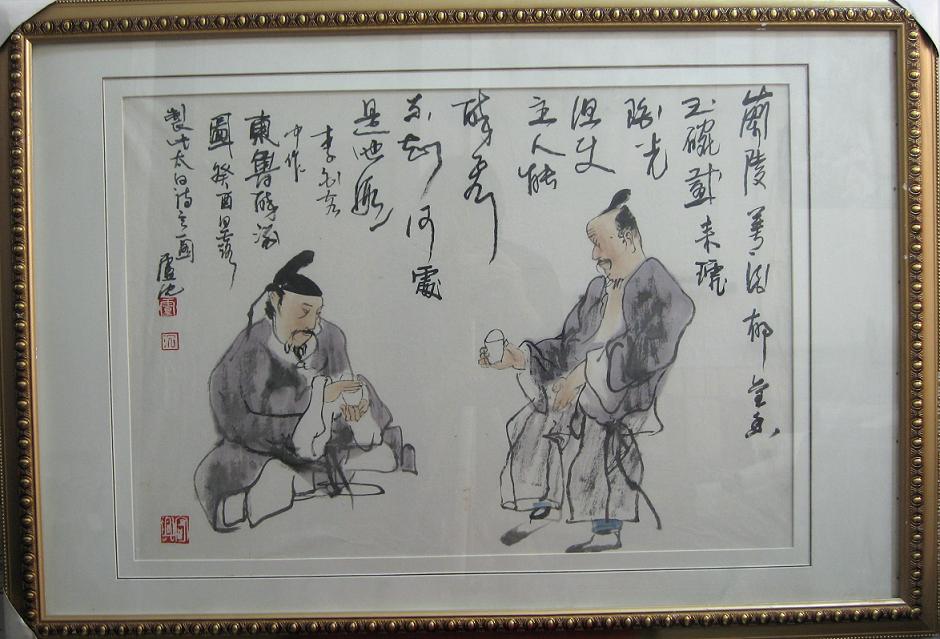 蘭陵美酒郁金香
玉碗盛来琥
珀光
但使
主人能
醉客
不知何處
是他鄉
李白客
中作
東魯醉酒
圖癸酉
製太白詩意圖
盧沉
盧
沉